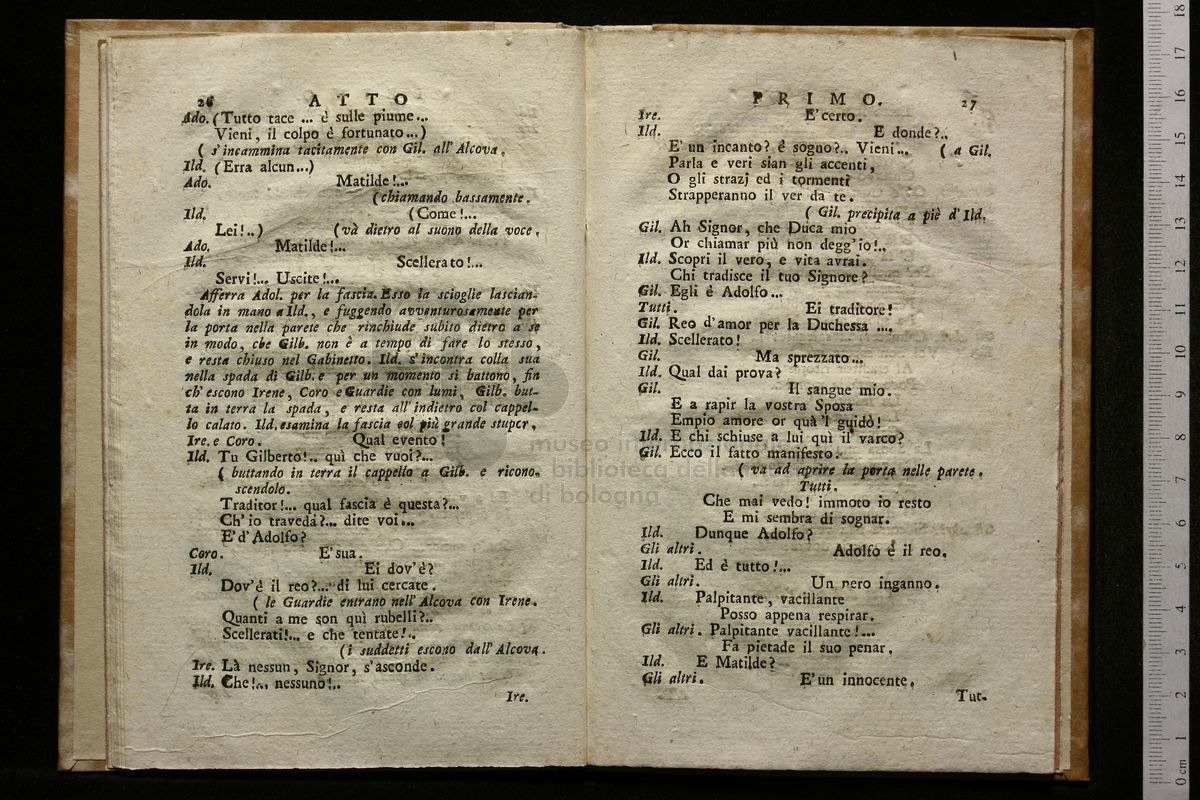 26 ATTO
Ado. (Tutto tace ... è sulle piume...
Vieni, il colpo è fortunato...)
( s'incammina tacitamente con Gil. all'Alcova.
Ild. (Erra alcun...)
Ado. Matilde!...
(chiamando bassamente.
Ild. (Come!...
Lei!..) (và dietro al suono della voce.
Ado. Matilde!...
Ild. Scellerato!...
Servi!... Uscite!...
Afferra Adol. per la fascia. Esso la scioglie lascian-
dola in mano a Ild., e fuggendo avventurosamente per
la porta nella parete che rinchiude subito dietro a se
in modo, che Gilb. non è a tempo di fare lo stesso,
e resta chiuso nel Gabinetto. Ild. s'incontra colla sua
nella spada di Gilb. e per un momento si battono, fin
ch'escono Irene, Coro e Guardie con lumi, Gilb. but-
ta in terra la spada, e resta all'indietro col cappel-
lo calato. Ild. esamina la fascia col più grande stupor.
Ire. e Coro. Qual evento!
Ild. Tu Gilberto!.. quì che vuoi?...
( buttando in terra il cappello a Gilb. e ricono-
scendolo.
Traditor!... qual fascia è questa?...
Ch'io traveda?... dite voi...
E'd'Adolfo?
Coro. E'sua.
Ild. Ei dov'è?
Dov'è il reo?... di lui cercate.
( le Guardie entrano nell'Alcova con Irene.
Quanti a me son quì rubelli?..
Scellerati!... e che tentate!..
(i suddetti escono dall'Alcova.
Ire. Là nessun, Signor, s'asconde.
Ild. Che!... nessuno!..
Ire.
PRIMO. 27
Ire. E'certo.
Ild. E donde?..
E' un incanto? è sogno?.. Vieni... ( a Gil.
Parla e veri sian gli accenti,
O gli strazj ed i tormenti
Strapperanno il ver da te.
( Gil. precipita a piè d'Ild.
Gil. Ah Signor, che Duca mio
Or chiamar più non degg'io!..
Ild. Scopri il vero, e vita avrai.
Chi tradisce il tuo Signore?
Gil. Egli è Adolfo...
Tutti. Ei traditore!
Gil. Reo d'amor per la Duchessa ....
Ild. Scellerato!
Gil. Ma sprezzato...
Ild. Qual dai prova?
Gil. Il sangue mio.
E a rapir la vostra Sposa
Empio amore or quà 'l guidò!
Ild. E chi schiuse a lui quì il varco?
Gil. Ecco il fatto manifesto.
( va ad aprire la porta nelle parete.
Tutti.
Che mai vedo! immoto io resto
E mi sembra di sognar.
Ild. Dunque Adolfo?
Gli altri. Adolfo è il reo.
Ild. Ed è tutto!...
Gli altri. Un nero inganno.
Ild. Palpitante, vacillante
Posso appena respirar.
Gli altri. Palpitante vacillante!...
Fa pietade il suo penar.
Ild. E Matilde?
Gli altri. E'un innocente.
Tut-